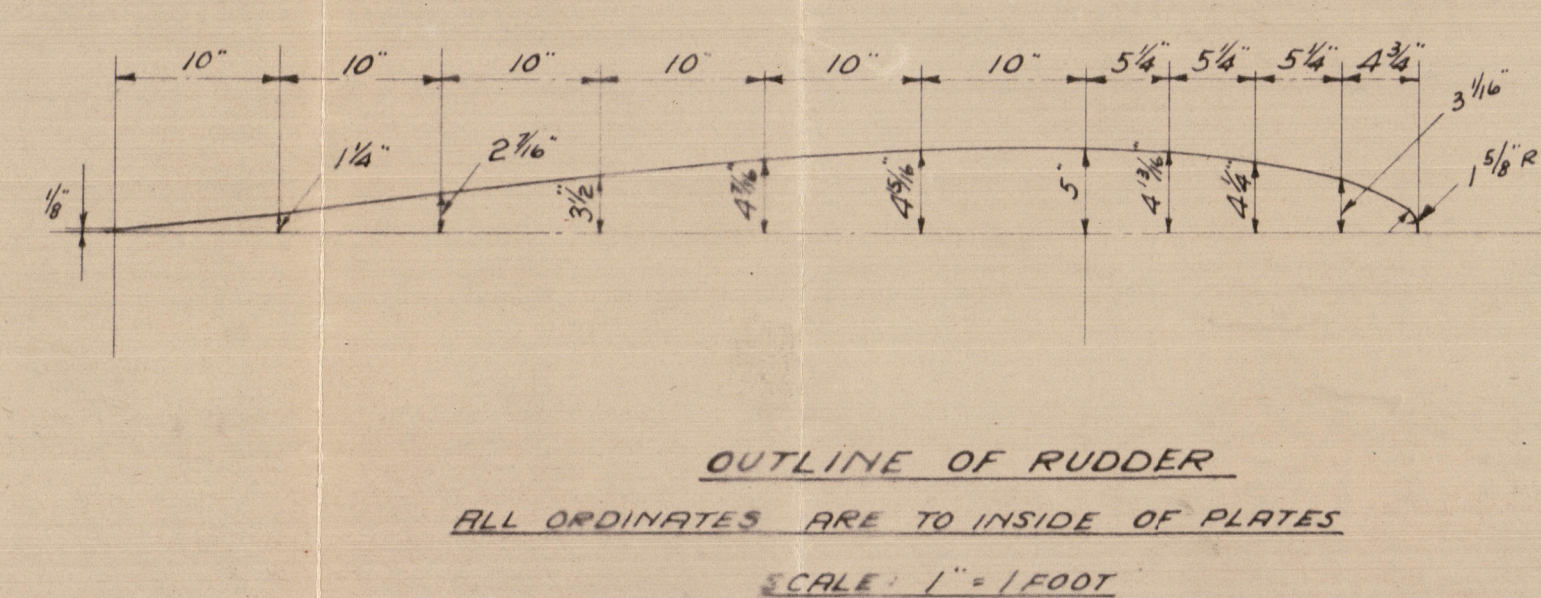 10" 10" 10" 10" 10" 10" 5 1/4" 5 1/4" 5 1/4" 4 3/4"
3 1/16"
1 1/4" 2 7/16" 1 5/8" R
1/8" 3 1/2" 4 3/16" 4 15/16" 5" 4 13/16" 4 1/4"
OUTLINE OF RUDDER
ALL ORDINATES ARE TO INSIDE OF PLATES
SCALE: 1" = 1 FOOT